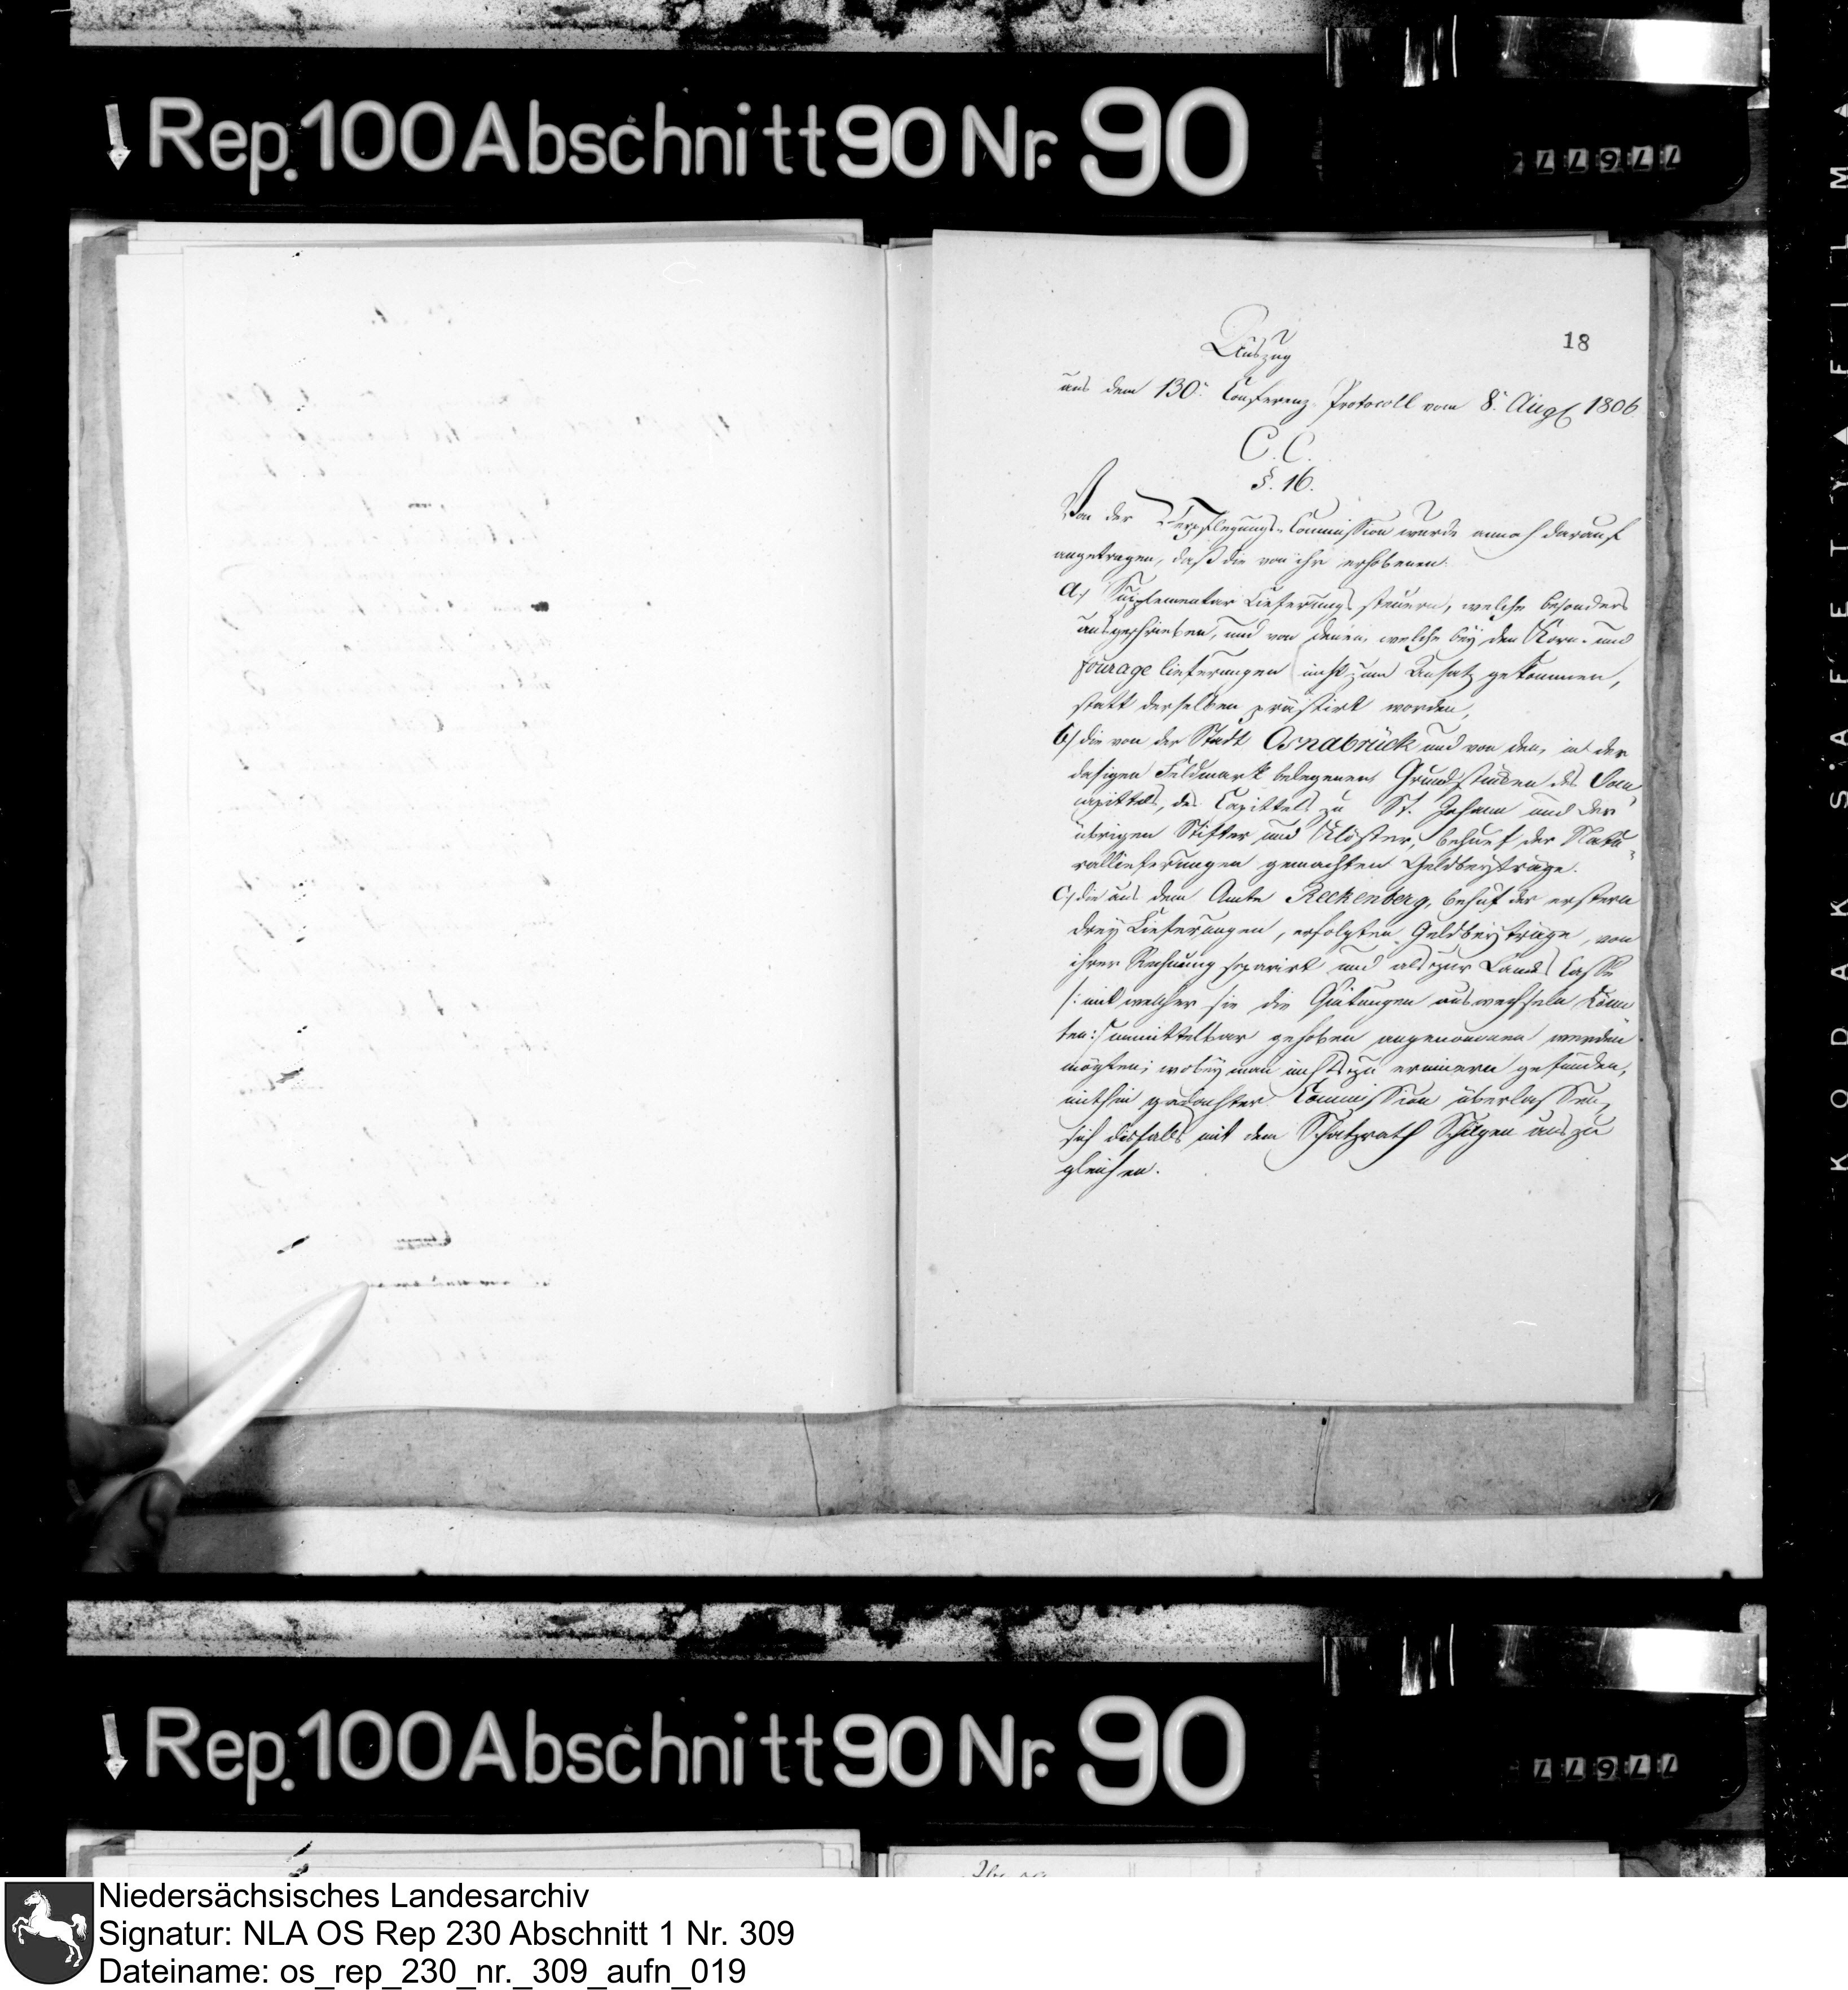 Rep. 100 Abschnitt 90 Nr. 90
77677
18
Auszug
aus dem 130. Conferenz-Protocoll vom 8. Aug. 1806
C. C.
§. 16.
Von der Verpflegungs-Commission wurde annoch darauf
angetragen, daß die von ihr erhobenen:
a) Supplementar Lieferungs steuern, welche besonders
ausgeschrieben, und von denen, welche bey den Korn- und
fourage lieferungen nicht zum Ansatz gekommen,
statt derselben prästirt worden,
b) die von der Stadt Osnabrück und von den, in der
dasigen Feldmark belegenen Grundstücken des Dom
capittels, des Capittels zu St. Johann und der
übrigen Stifter und Klöster, behuef der Natu-
rallieferungen gemachten Geldbeyträge.
c) die aus dem Amte Reckenberg, behuf der erstern
drey Lieferungen, erfolgten Geldbeyträge, von
ihrer Rechnung separirt und als zur Landes Casse
/: mit welcher sie die Quitungen auswechseln könn
ten :/ unmittelbar gehoben angenommen werden
mögten; wobey man nichts zu erinnern gefunden,
mithin gedachter Commission überlassen,
sich disfalls mit dem Schatzrath Schilgen auszu
gleichen.
KODAK SAFETY FILM
Rep. 100 Abschnitt 90 Nr. 90
77677
Niedersächsisches Landesarchiv
Signatur: NLA OS Rep 230 Abschnitt 1 Nr. 309
Dateiname: os_rep_230_nr._309_aufn_019